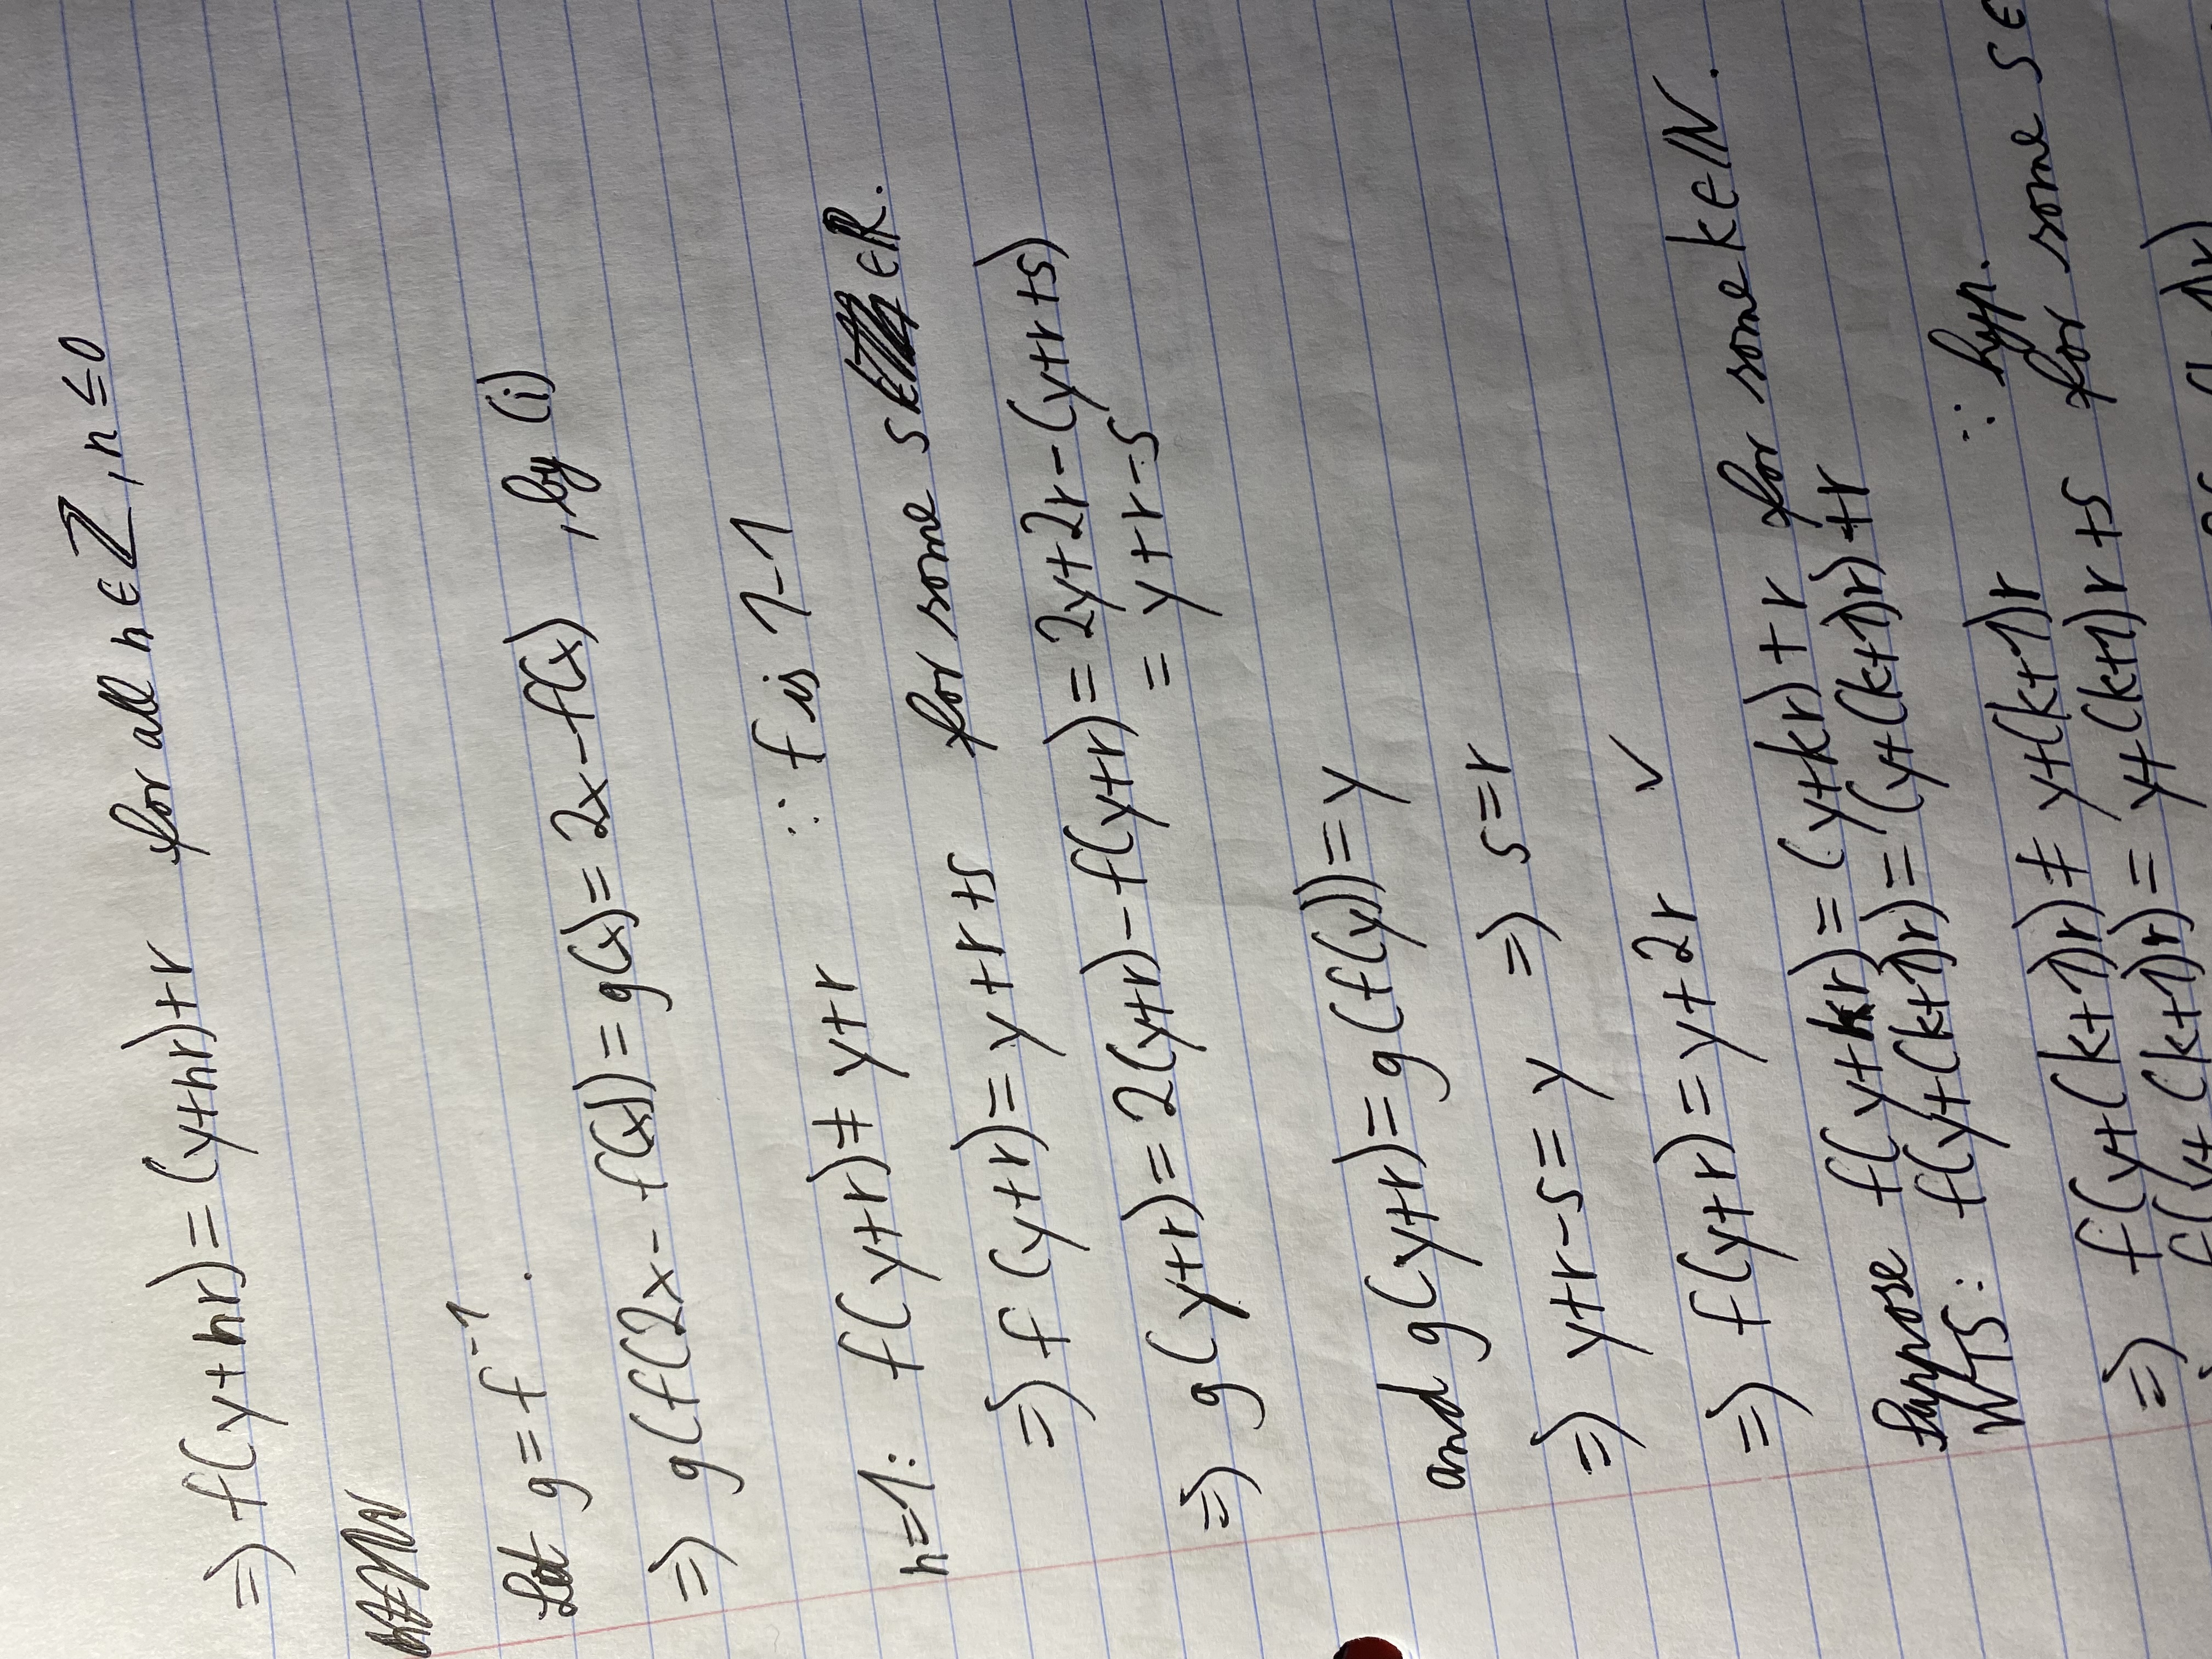 ⇒ f(y+nr) = (y+nr)+r for all n ∈ ℤ, n ≤ 0
Let g = f⁻¹.
⇒ g(f(2x - f(x))) = g(x) = 2x - f(x) , by (i)
n=1: f(y+r) ≠ y+r ∵ f is 1-1
⇒ f(y+r) = y+r+s for some s ∈ ℝ.
⇒ g(y+r) = 2(y+r) - f(y+r) = 2y+2r-(y+r+s)
= y+r-s
and g(y+r) = g(f(y)) = y
⇒ y+r-s = y ⇒ s=r
⇒ f(y+r) = y+2r ✓
Suppose f(y+kr) = (y+kr)+r for some k ∈ ℕ.
WTS: f(y+(k+1)r) = (y+(k+1)r)+r
⇒ f(y+(k+1)r) ≠ y+(k+1)r ∵ hyp.
f(y+(k+1)r) = y+(k+1)r+s for some s ∈